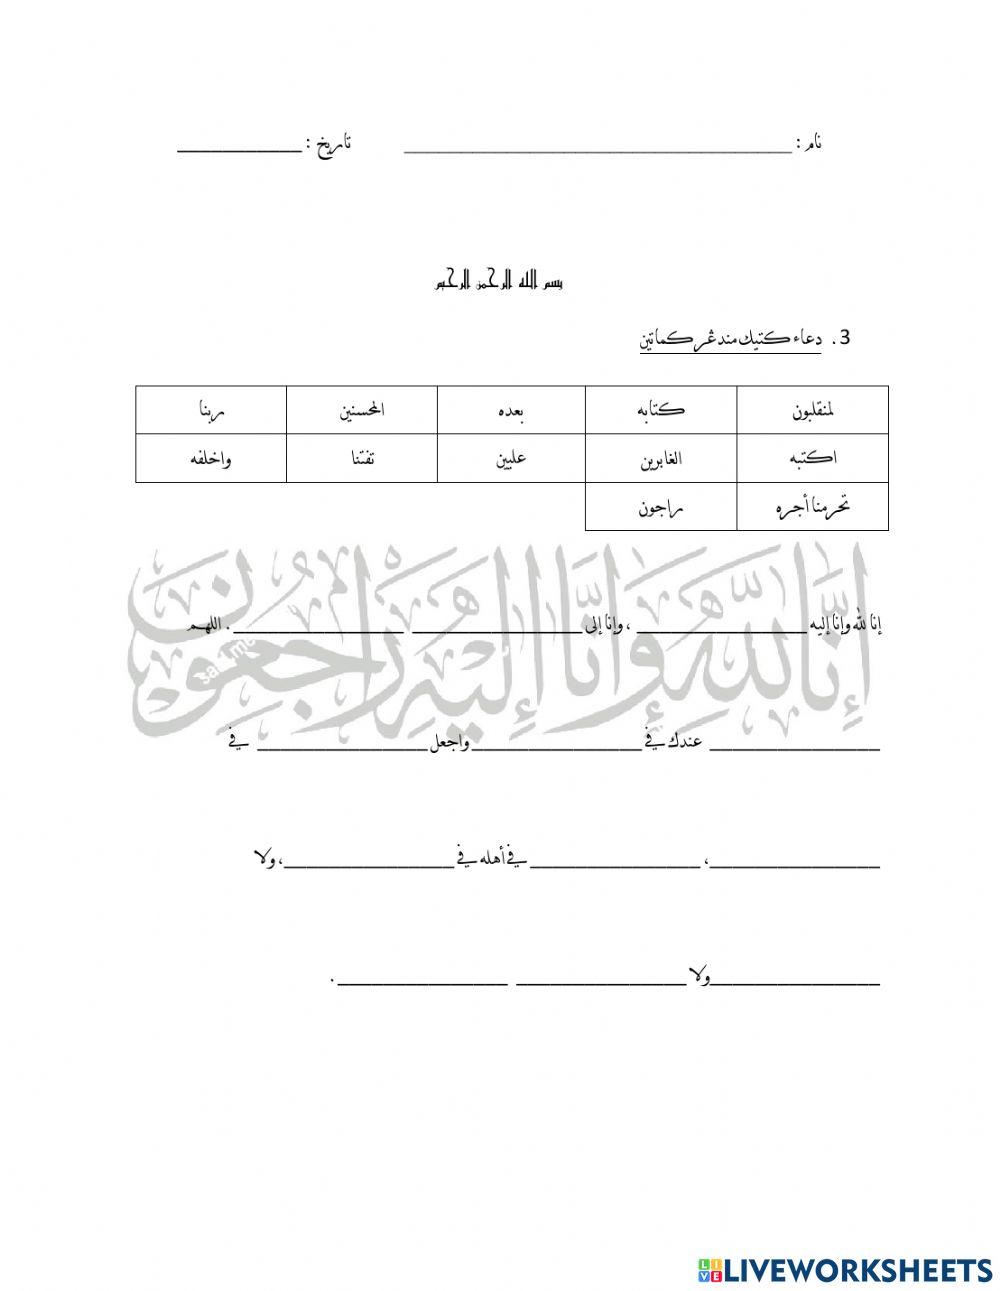 نام : __________________ تاريخ : __________
بسم الله الرحمن الرحيم
3. دعاء كتيك مندڠر كماتين
لمنقلبون كتابه بعده المحسنين ربنا
اكتبه الغابرين عليين تفتنا واخلفه
تحرمنا أجره راجون
إنا لله وإنا إليه راجعون
sa1.me
إنا لله وإنا إليه __________ ، وإنا إلى __________ __________ . اللهم
__________ عندك في __________ واجعل __________ في
__________ ، __________ في أهله في __________ ، ولا
__________ ولا __________ __________ .
LIVE LIVEWORKSHEETS